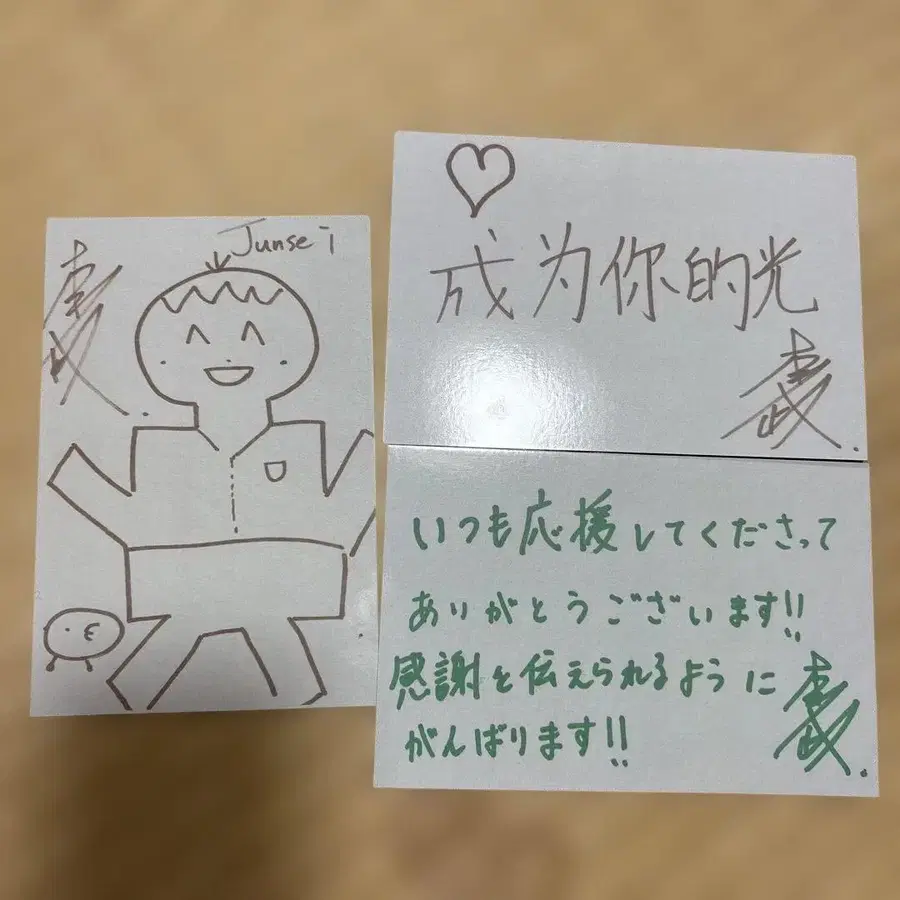 Junsei
成为你的光
いつも応援してくださって
ありがとうございます!!
感謝を伝えられるように
がんばります!!